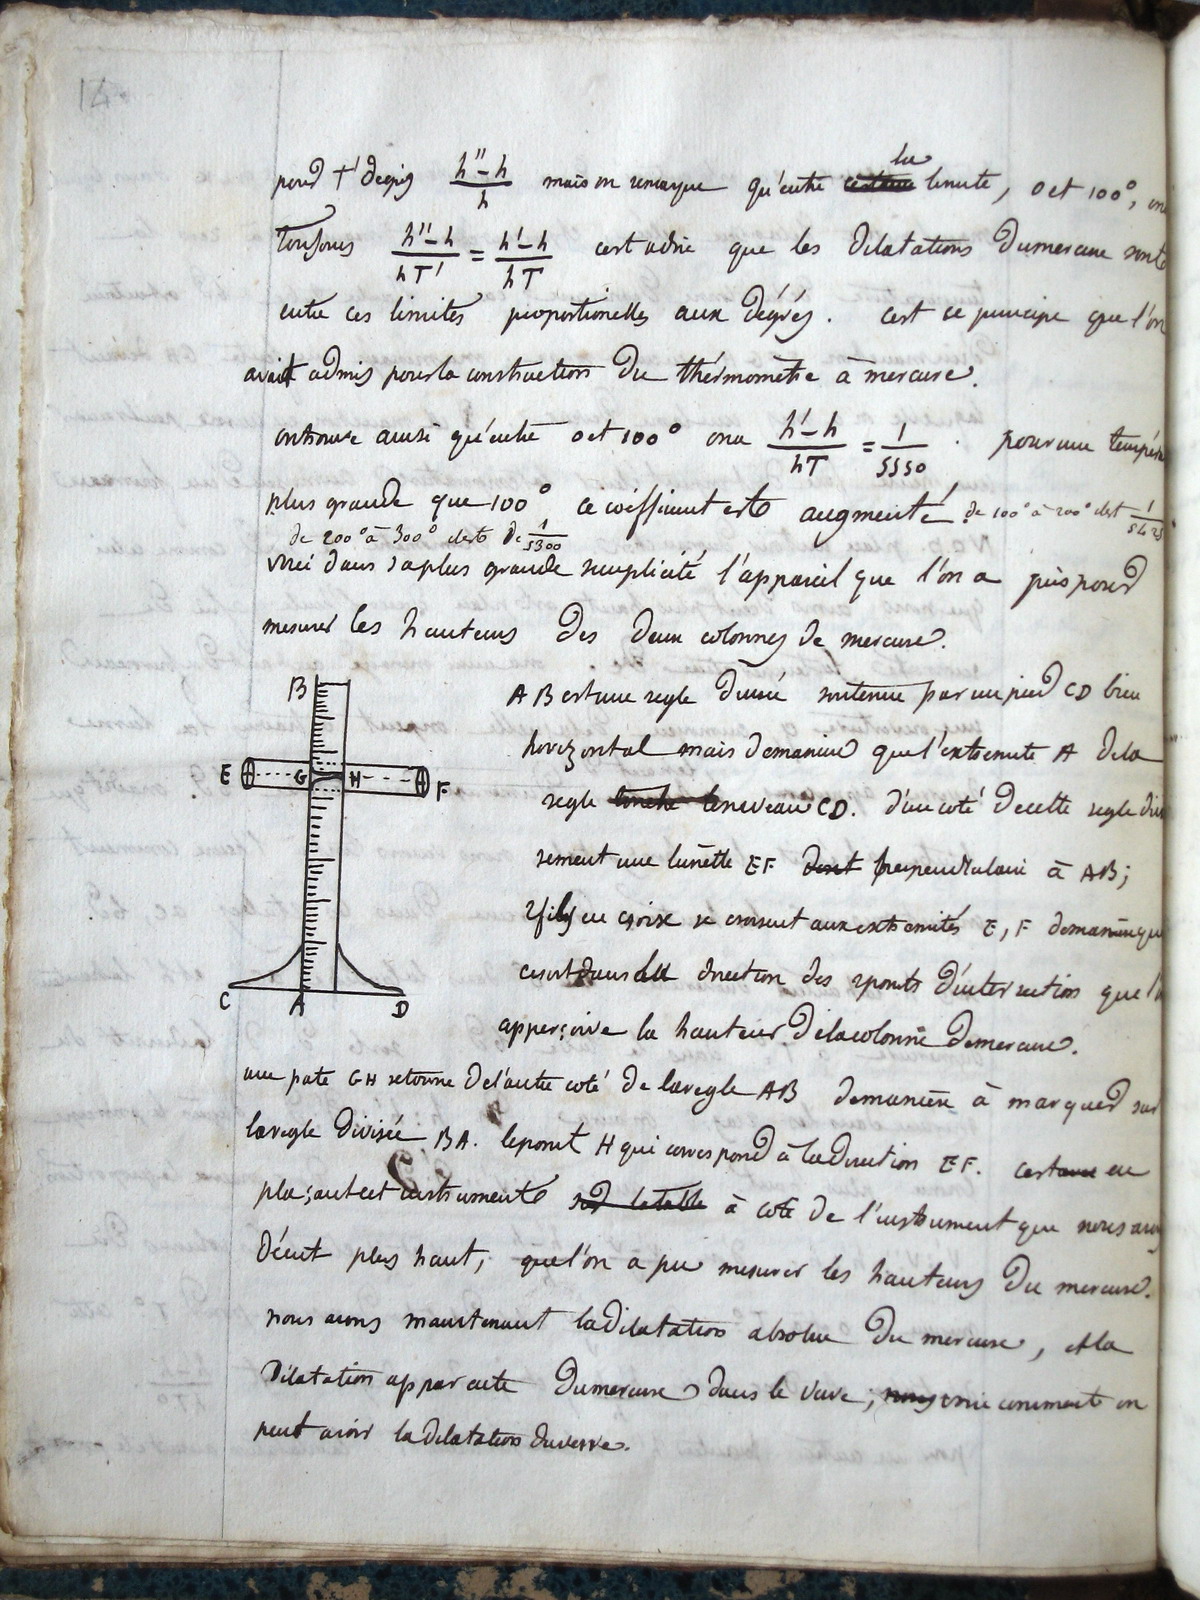 14.
pour T' degrés (h''-h)/h mais on remarque qu'entre la limite, 0 et 100°, on
toujours (h''-h)/(hT') = (h'-h)/(hT) c'est adire que les dilatations du mercure sont
entre ces limites proportionelles aux dégrés. c'est ce principe que l'on
avait admis pour la construction du thérmomètre à mercure.
on trouve aussi qu'entre 0 et 100° on a (h'-h)/(hT) = 1/5550. pour une tempéra
plus grande que 100° ce coéfficient est augmenté. de 100° à 200° il est 1/5425
de 200° à 300° il est de 1/5300
voici dans sa plus grande simplicité l'appareil que l'on a pris pour
mesurer les hauteurs des deux colonnes de mercure.
B
E G H F
C A D
AB est une regle divisée soutenue par un pied CD bien
horizontal mais de maniere que l'extremité A de la
regle touche le niveau CD. d'un coté de cette regle divi
sement une lunètte EF dont perpendiculaire à AB;
2 fils en croix se croisent aux extremités E, F de manière que
ce soit dans la direction des 2 points d'intersection que l'
apperçoive la hauteur de la colonne de mercure.
une pate GH retourne de l'autre coté de la regle AB de manière à marquer sur
la regle divisée BA. le point H qui correspond à la direction EF. c'est en
plaçant cet instrument sur la table à coté de l'instrument que nous avons
décrit plus haut, que l'on a pu mesurer les hauteurs du mercure.
nous avons maintenant la dilatation absolue du mercure, et la
dilatation apparente du mercure dans le verre; nous voici comment on
peut avoir la dilatation du verre.